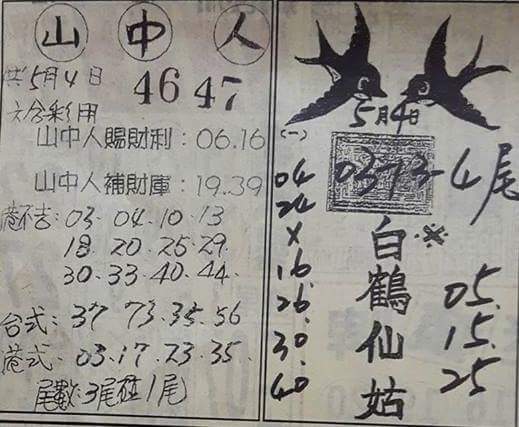 山中人
供5月4日
46 47
六合彩用
山中人賜財利：06.16
山中人補財庫：19.39
港不吉：03. 04.10.13
18. 20. 25.29.
30.33.40.44.
台式：37 73.35.56
港式：03.17.23.35.
尾數：3尾碰1尾
5月4日
(一)
03-13-4尾
04
24
X
16.
26.
30.
40
白鶴仙姑
※
05.
15.
25